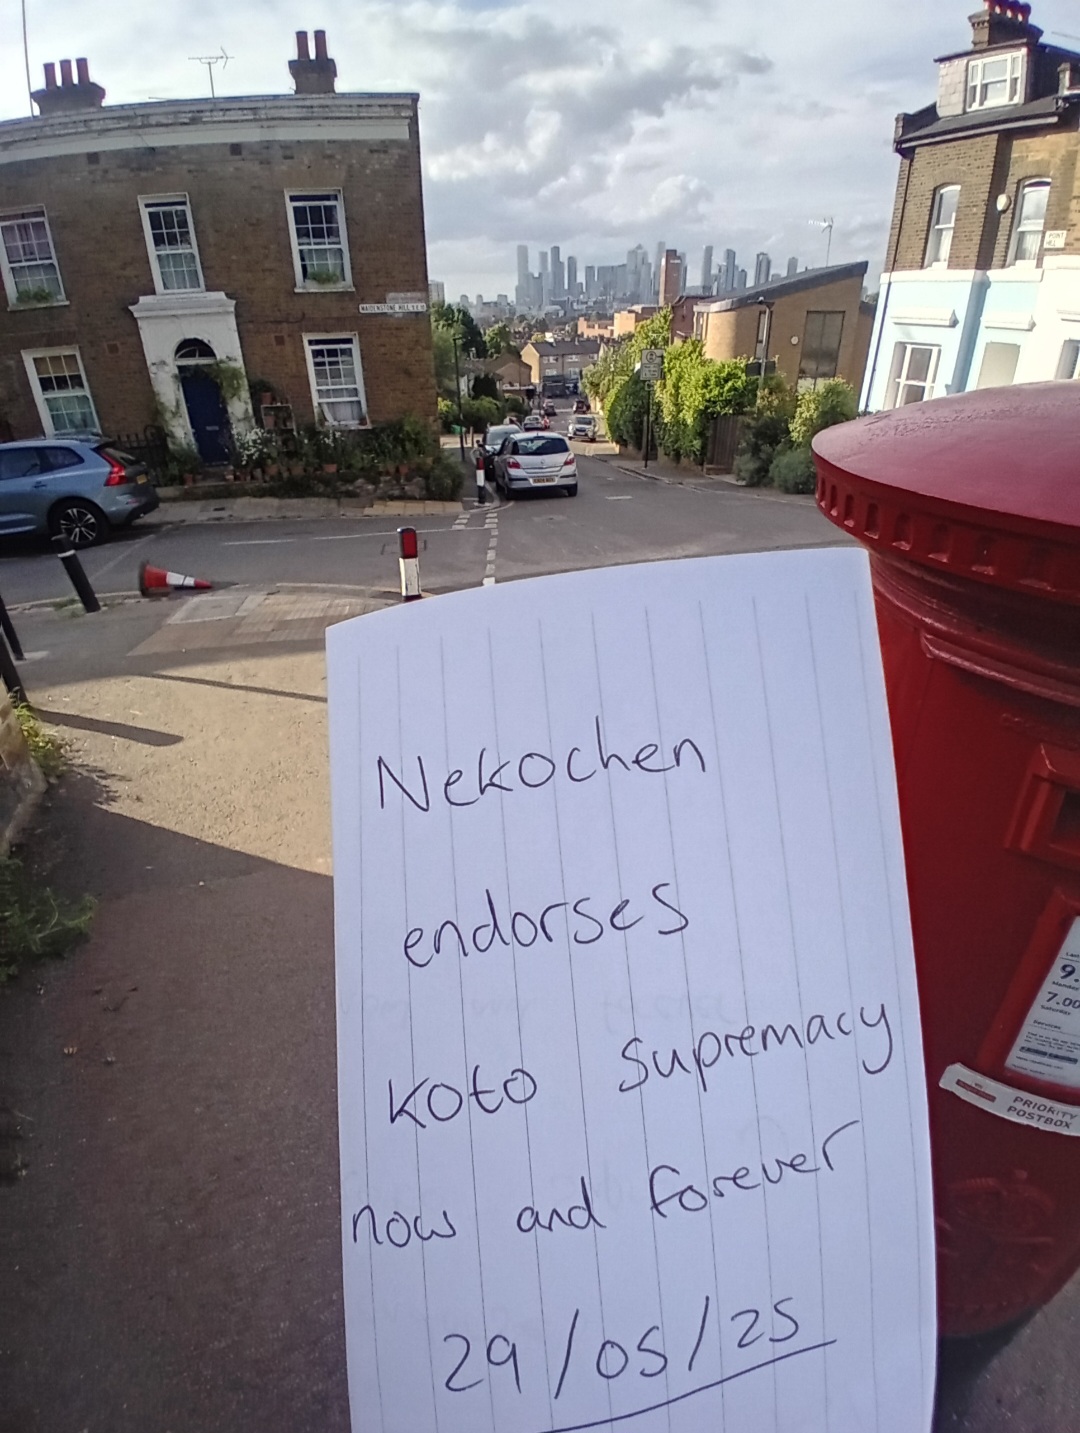 MAIDENSTONE HILL S.E.10
POINT
HILL
Nekochen
endorses
koto supremacy
now and forever
29/05/25
9.
7.00
Saturday
Services
PRIORITY
POSTBOX